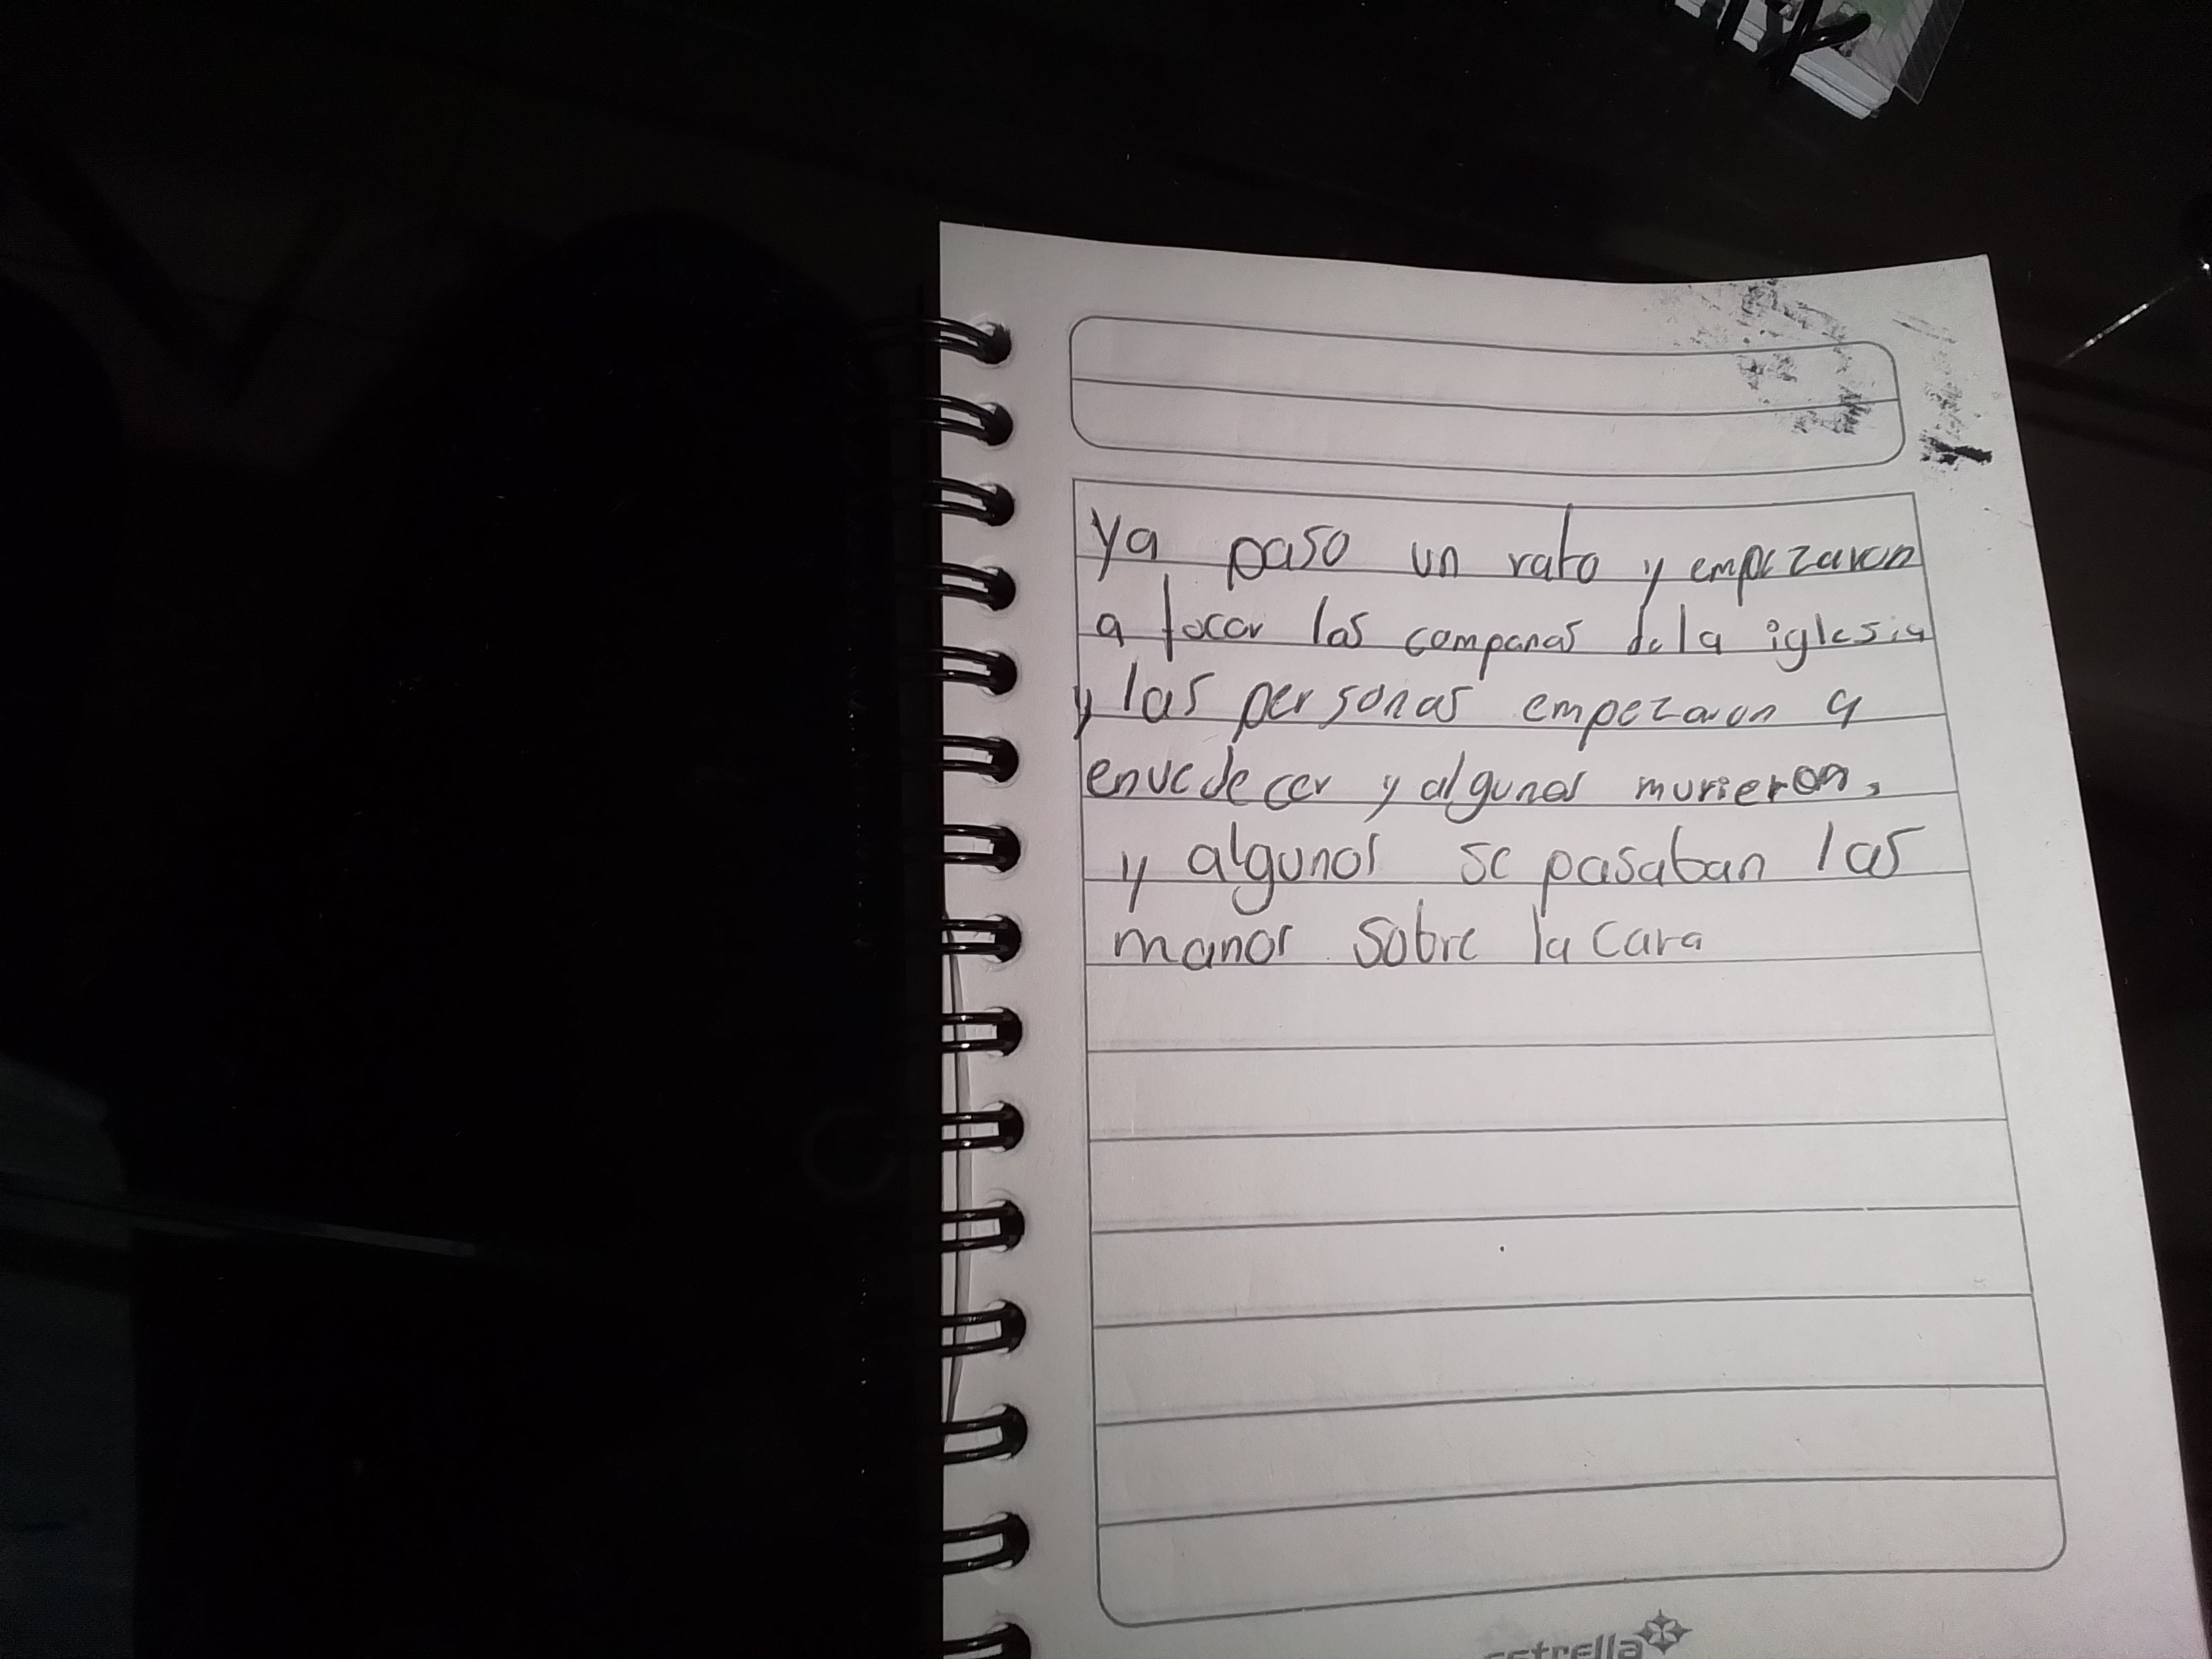 ya paso un rato y empezaron
a tocar las companas de la iglesia
y las personas empezaron a
envedecer y algunos murieron,
y algunos se pasaban las
manos sobre la cara
estrella